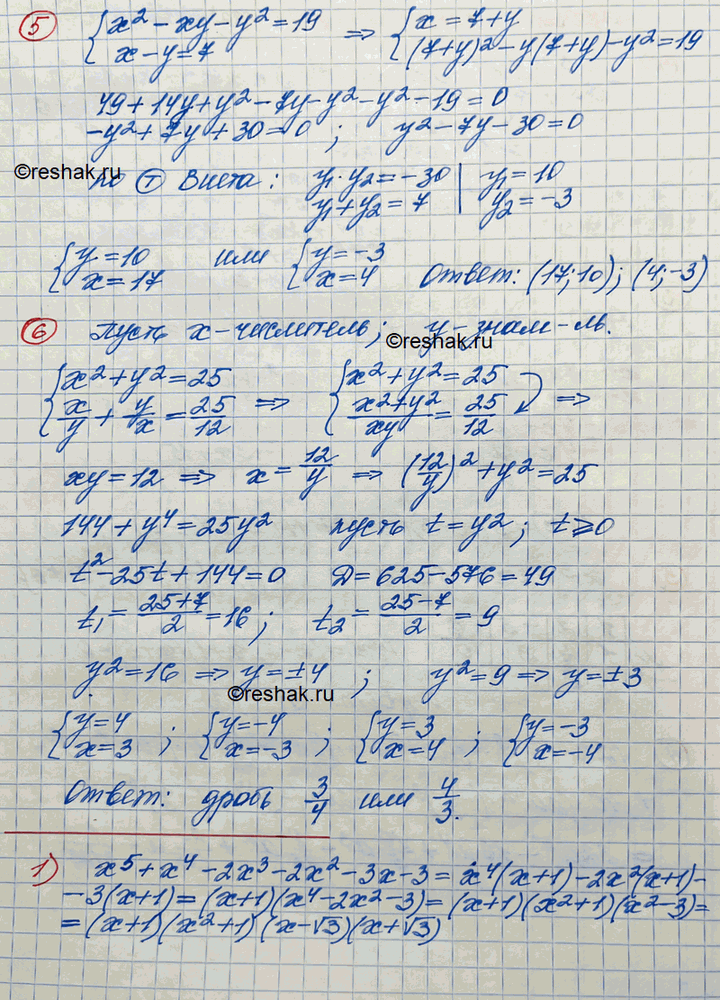 5 { x² - xy - y² = 19 ⇒ { x = 7 + y
x - y = 7 (7+y)² - y(7+y) - y² = 19
49 + 14y + y² - 7y - y² - y² - 19 = 0
-y² + 7y + 30 = 0 ; y² - 7y - 30 = 0
©reshak.ru
по Т Виета: y₁·y₂ = -30 | y₁ = 10
y₁ + y₂ = 7 | y₂ = -3
{ y = 10 или { y = -3
x = 17 x = 4 Ответ: (17; 10); (4; -3)
6 Пусть x - числитель; y - знам-ль.
©reshak.ru
{ x² + y² = 25 ⇒ { x² + y² = 25 ⇒
x/y + y/x = 25/12 (x² + y²)/xy = 25/12
xy = 12 ⇒ x = 12/y ⇒ (12/y)² + y² = 25
144 + y⁴ = 25y² пусть t = y²; t ⩾ 0
t² - 25t + 144 = 0 Д = 625 - 576 = 49
t₁ = (25+7)/2 = 16; t₂ = (25-7)/2 = 9
y² = 16 ⇒ y = ±4 ; y² = 9 ⇒ y = ±3
©reshak.ru
{ y = 4 ; { y = -4 ; { y = 3 ; { y = -3
x = 3 x = -3 x = 4 x = -4
Ответ: дробь 3/4 или 4/3.
1) x⁵ + x⁴ - 2x³ - 2x² - 3x - 3 = x⁴(x+1) - 2x²(x+1) -
- 3(x+1) = (x+1)(x⁴ - 2x² - 3) = (x+1)(x²+1)(x²-3) =
= (x+1)(x²+1)(x-√3)(x+√3)